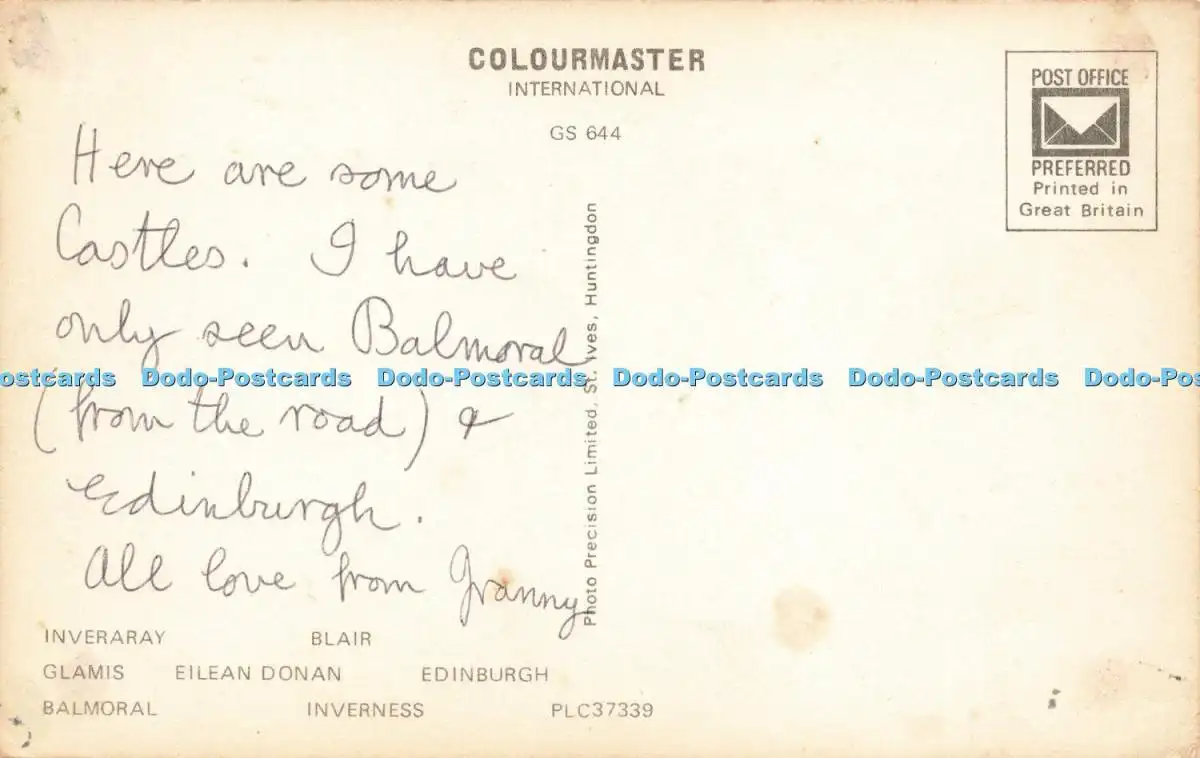 COLOURMASTER
INTERNATIONAL
GS 644
POST OFFICE
PREFERRED
Printed in
Great Britain
Here are some
Castles. I have
only seen Balmoral
(from the road) &
Edinburgh.
All love from Granny
Photo Precision Limited, St. Ives, Huntingdon
ostcards Dodo-Postcards Dodo-Postcards Dodo-Postcards Dodo-Postcards Dodo-Pos
INVERARAY BLAIR
GLAMIS EILEAN DONAN EDINBURGH
BALMORAL INVERNESS PLC37339